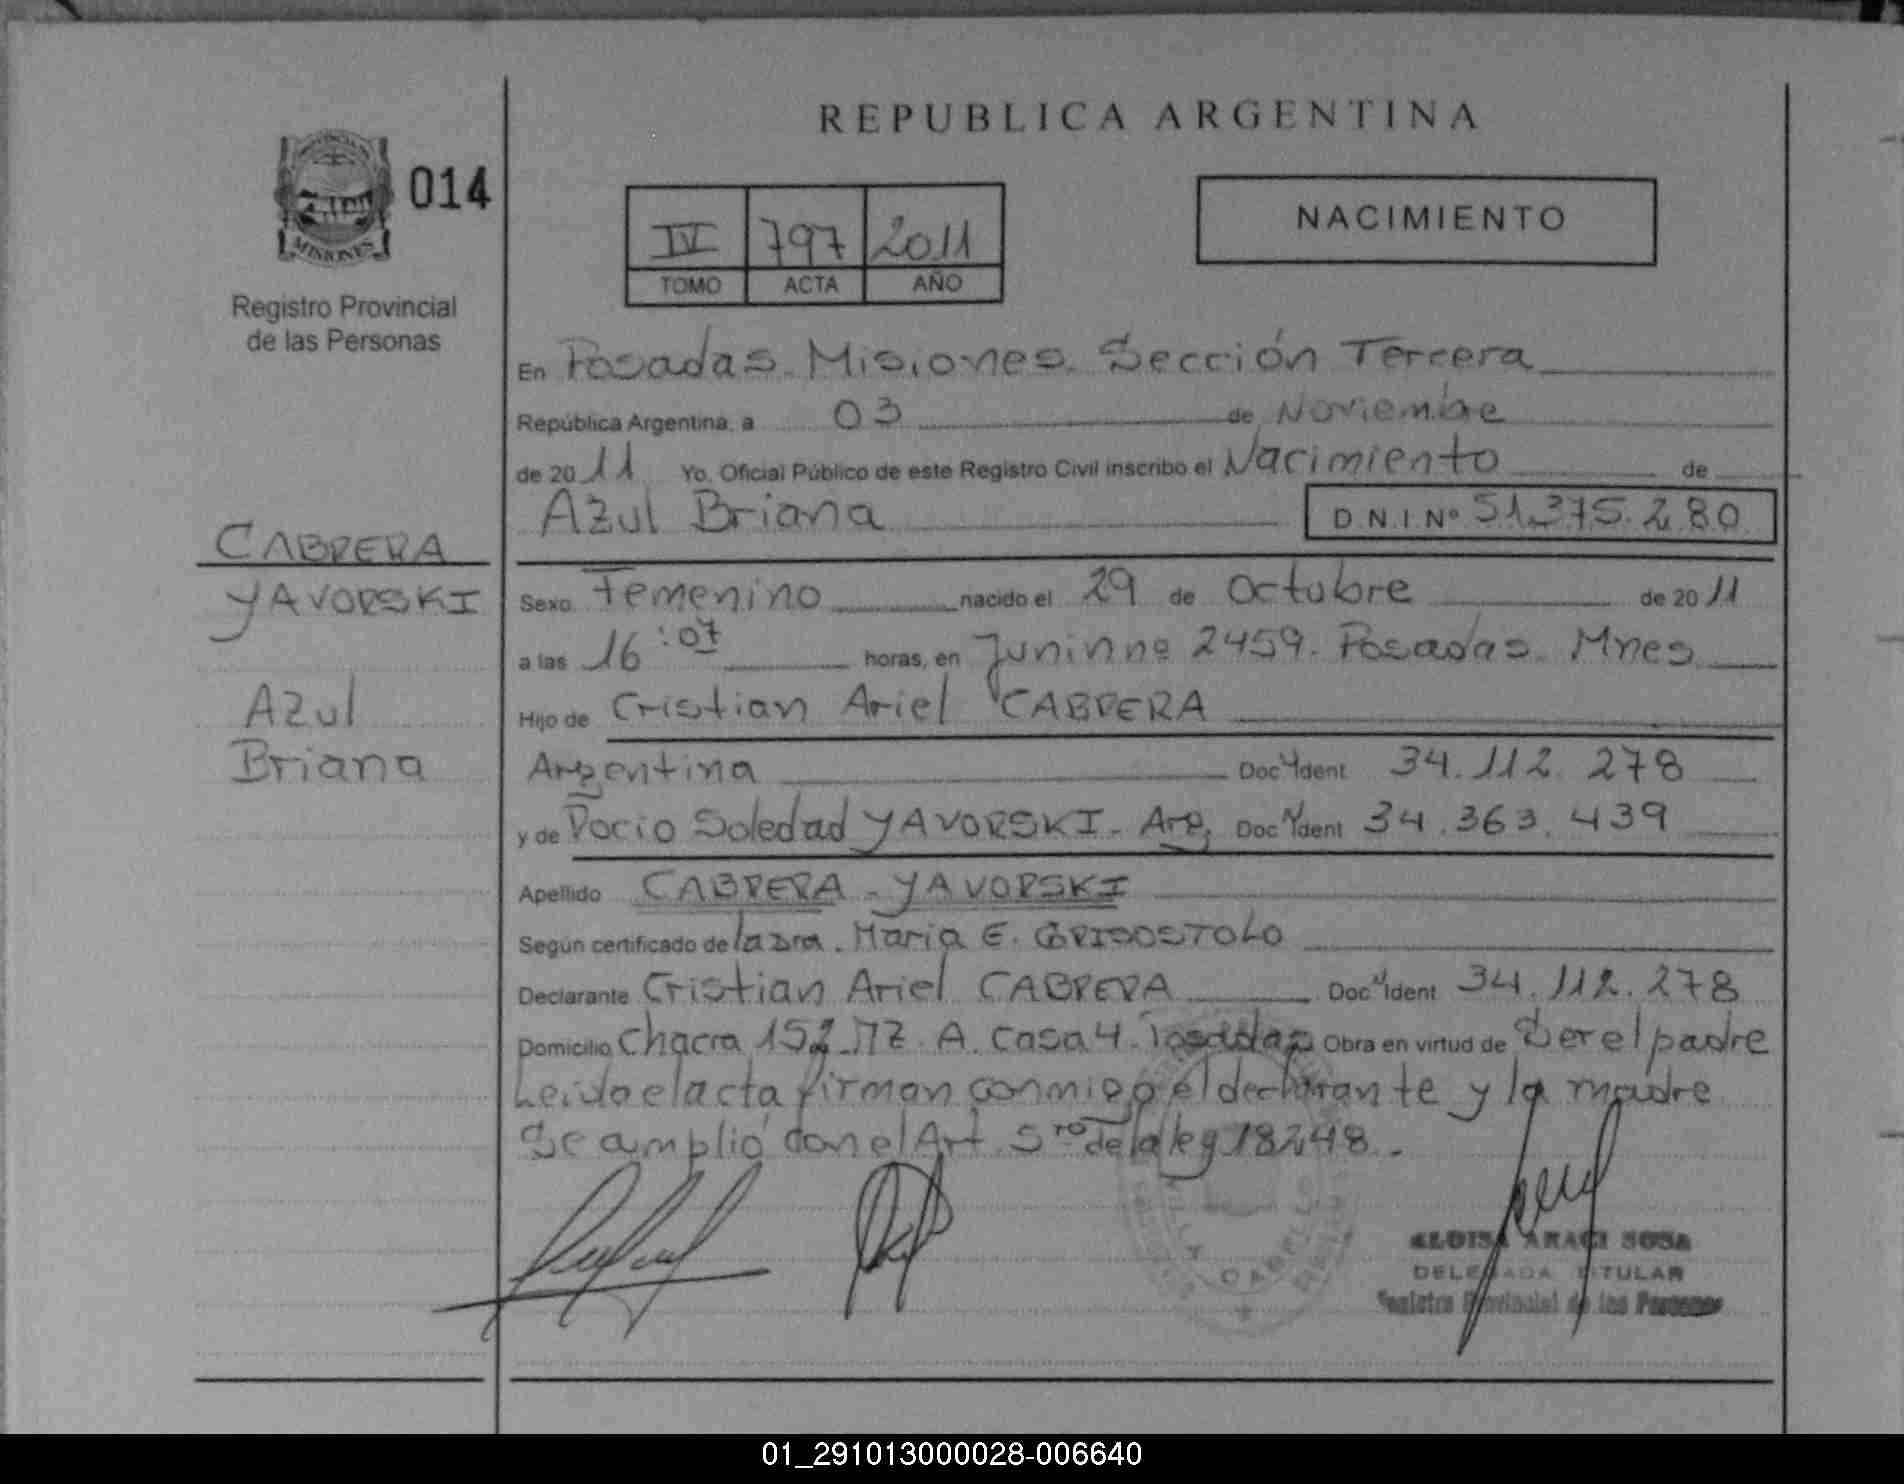 REPUBLICA ARGENTINA
014
MISIONES
Registro Provincial
de las Personas
IV 797 2011
TOMO ACTA AÑO
NACIMIENTO
En Posadas Misiones Sección Tercera
República Argentina, a 03 de Noviembre
de 2011 Yo, Oficial Público de este Registro Civil inscribo el Nacimiento de
Azul Briana D.N.I Nº 51.375.280
CABRERA
YAVORSKI
Azul
Briana
Sexo Femenino nacido el 29 de Octubre de 2011
a las 16:07 horas, en Junin nº 2459. Posadas. Mnes
Hijo de Cristian Ariel CABRERA
Argentina Doc Ident 34.112.278
y de Rocio Soledad YAVORSKI - Arg. Doc Ident 34.363.439
Apellido CABRERA - YAVORSKI
Según certificado de la Dra. Maria E.
Declarante Cristian Ariel CABRERA Doc Ident 34.112.278
Domicilio Chacra 152 MZ A. Casa 4. Posadas Obra en virtud de Ser el padre
Leida el acta firman conmigo el declarante y la madre
Se amplió con el Art. 5to de la ley 18248.
ELOISA ARACI SOSA
DELEGADA TITULAR
Registro Provincial de las Personas
01_291013000028-006640